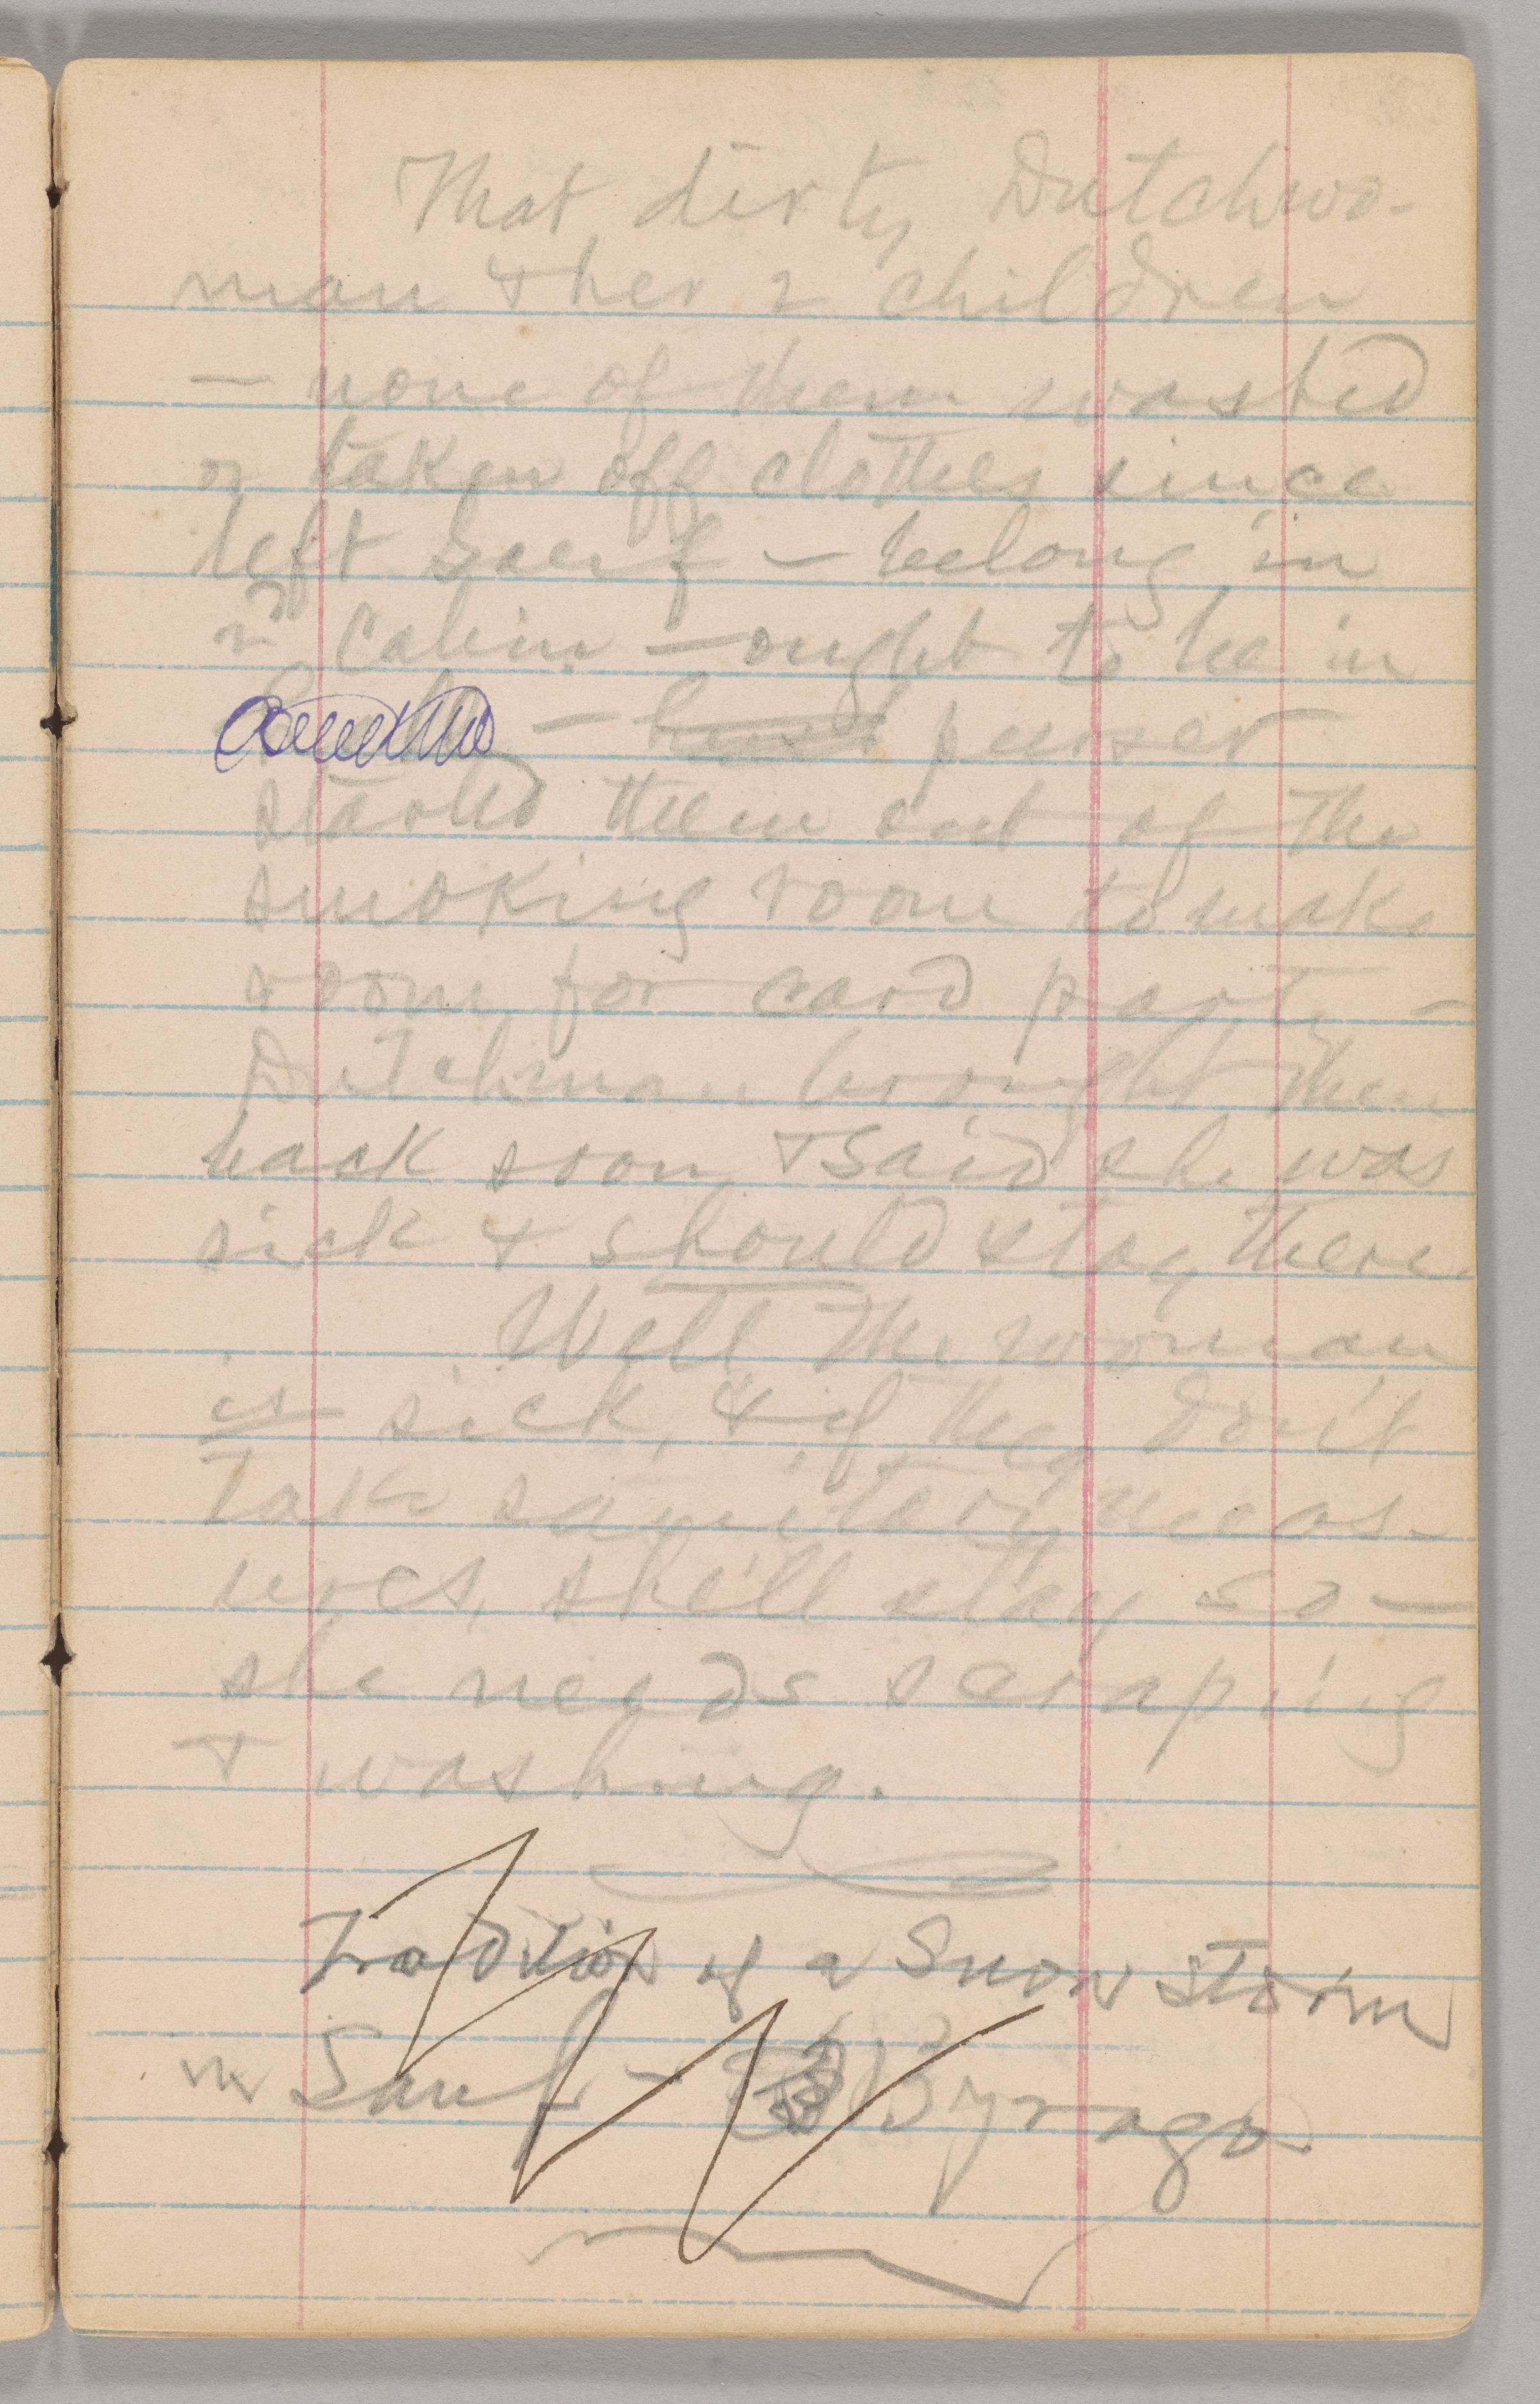 That dirty Dutchwo-
man & her 2 children
— none of them washed
or taken off clothes since
left San F — belong in
2d Cabin — ought to be in
— purser
started them out of the
smoking room to make
room for card party —
Dutchman brought them
back soon, & said she was
sick & should stay there.
Well the woman
is sick, & if they don't
take sanitary meas-
ures, she'll stay so —
she needs scraping
& washing.
Tradition of a Snow storm
in San F — 13 yr ago